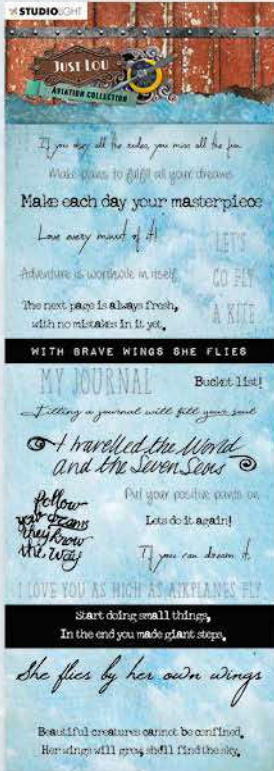 STUDIOLIGHT
JUST LOU
AVIATION COLLECTION
If you obey all the rules, you miss all the fun
Make plans to fulfill all your dreams
Make each day your masterpiece
Love every minute of it!
LET'S
GO FLY
A KITE
Adventure is worthwhile in itself
The next page is always fresh,
with no mistakes in it yet.
WITH BRAVE WINGS SHE FLIES
MY JOURNAL
Bucket list!
Filling a journal will fill your soul
I travelled the World
and the Seven Seas
follow
your dreams
they know
the way
Put your positive pants on
Lets do it again!
If you can dream it,
I LOVE YOU AS HIGH AS AIRPLANES FLY
Start doing small things,
In the end you made giant steps.
She flies by her own wings
Beautiful creatures cannot be confined.
Her wings will grow, she'll find the sky.